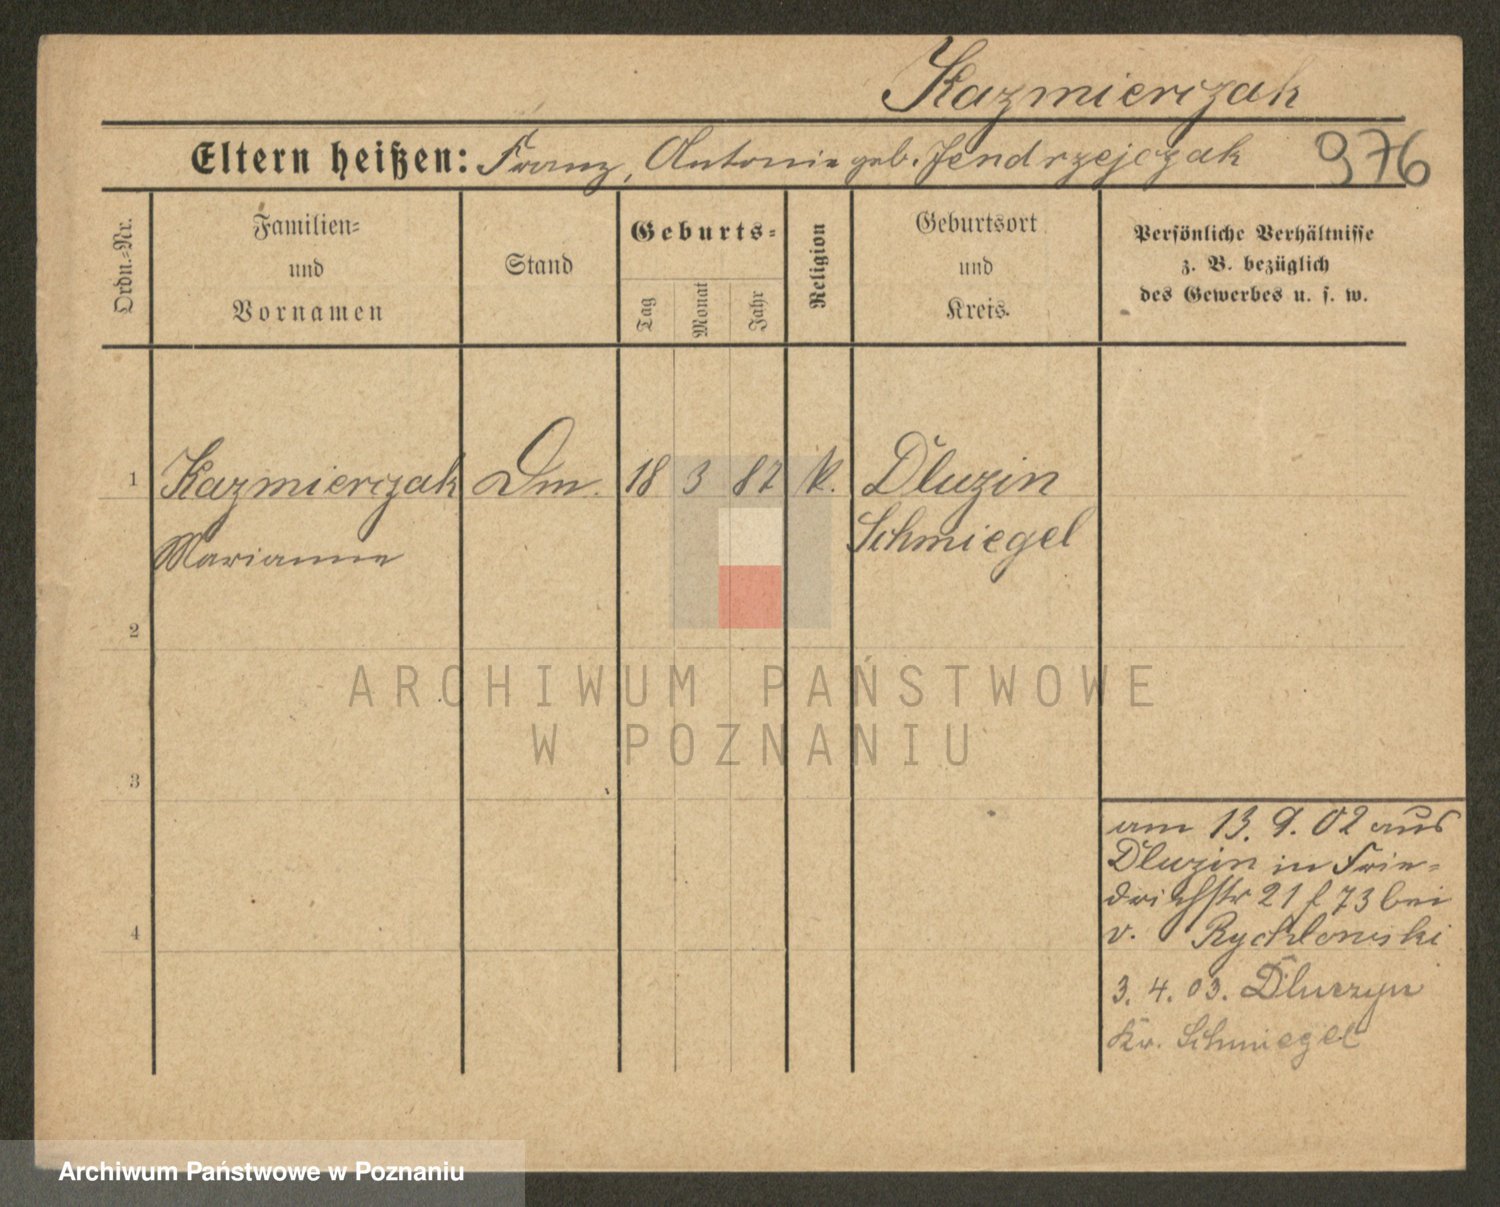 Kazmierczak
Eltern heißen: Franz, Antonie geb. Jendrzejczak 976
Ordn.-Nr.
Familien-
und
Vornamen
Stand
Geburts-
Tag
Monat
Jahr
Religion
Geburtsort
und
Kreis.
Persönliche Verhältnisse
z. B. bezüglich
des Gewerbes u. s. w.
1 Kazmierczak Dm. 18 3 82 k. Dluzin
Marianna Schmiegel
2
3
4
am 13. 9. 02 aus
Dluzin in Frie-
drichstr 21 f 73 bei
v. Rychlowski
3. 4. 03. Dluczyn
Kr. Schmiegel
ARCHIWUM PAŃSTWOWE
W POZNANIU
Archiwum Państwowe w Poznaniu